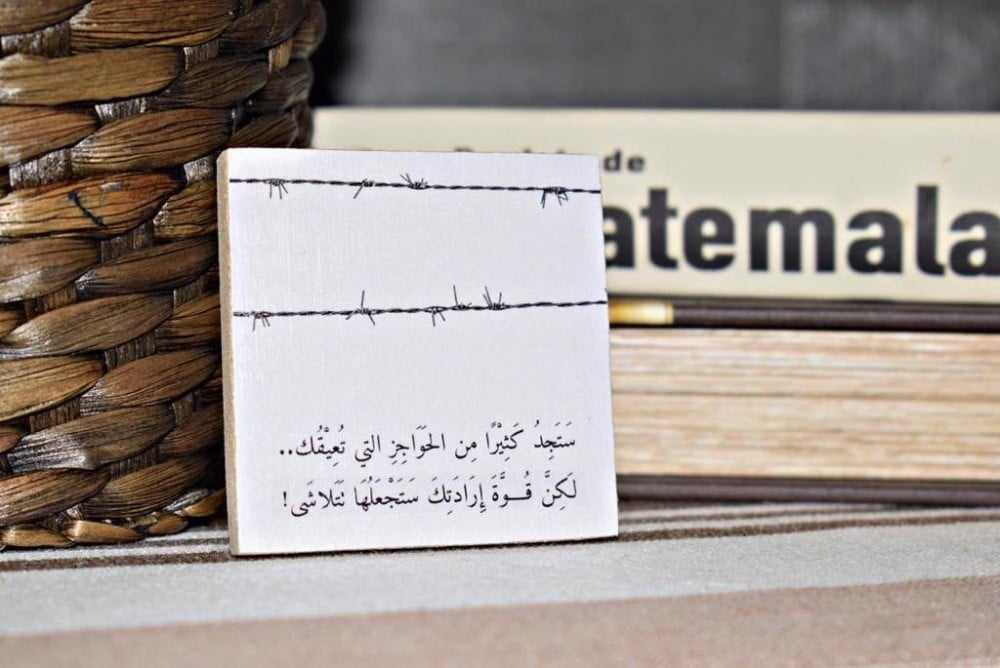 de
atemala
سَتَجِدُ كَثِيْرًا مِن الحَوَاجِزِ التي تُعِيْقُك..
لَكِنَّ قُــوَّةَ إِرَادَتِكَ سَتَجْعَلُهَا تَتَلاشَى!